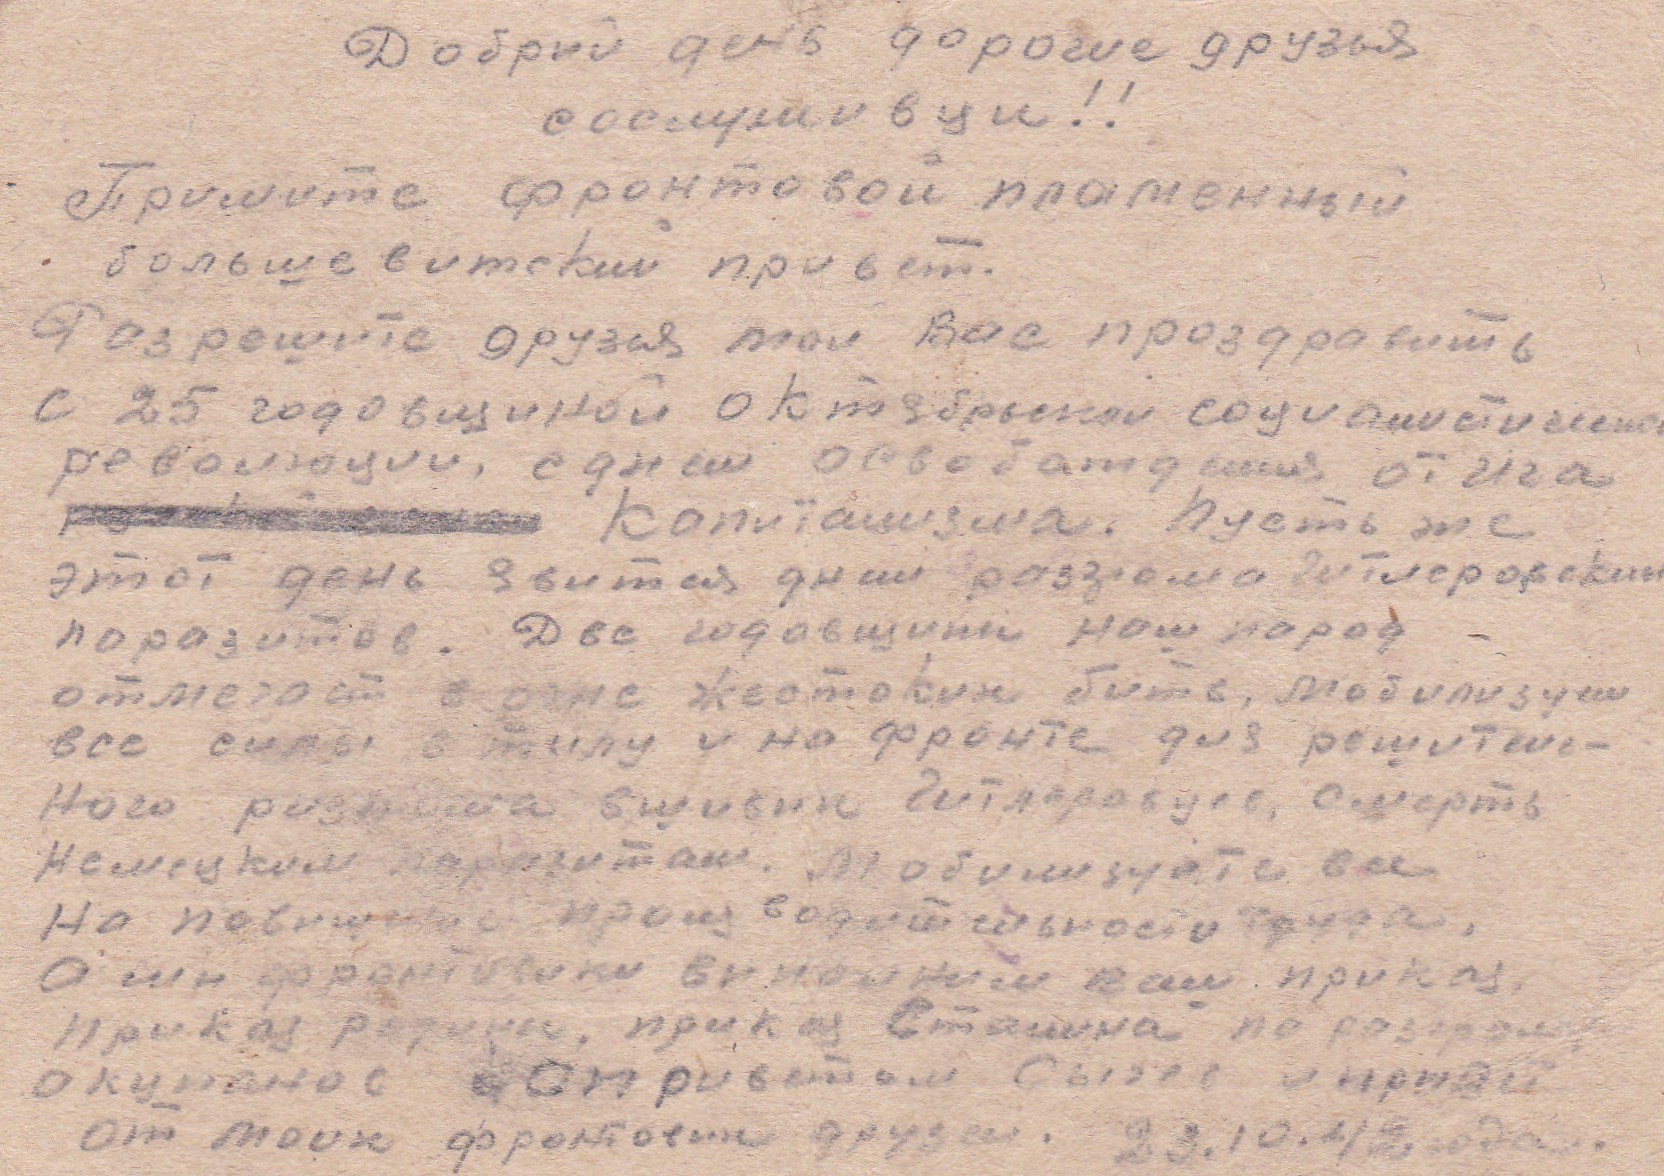 Добрий день дорогие друзья
сослуживци!!
Примите фронтовой пламенный
большевитский привет.
Разрешите друзья мои Вас проздравить
с 25 годовщиной Октябрьской социалистической
революции, с днем освобаждения от ига
Капитализма. Пусть же
этот день явится днем раззгрома Гитлеровских
паразитов. Две годовщини наш народ
отмечает в огне жестоких битв, мобилизуя
все силы в тилу и на фронте для решитель-
ного разгрома вшивих Гитлеровцев, Смерть
Немецким паразитам. Мобилизуйте все
На повишение производительности труда,
А ми фронтовики виполним ваш приказ,
приказ родини, приказ Сталина по разгрому
окупанов С приветом Сычев и привет
от моих фронтових друзей. 23.10.42 года.